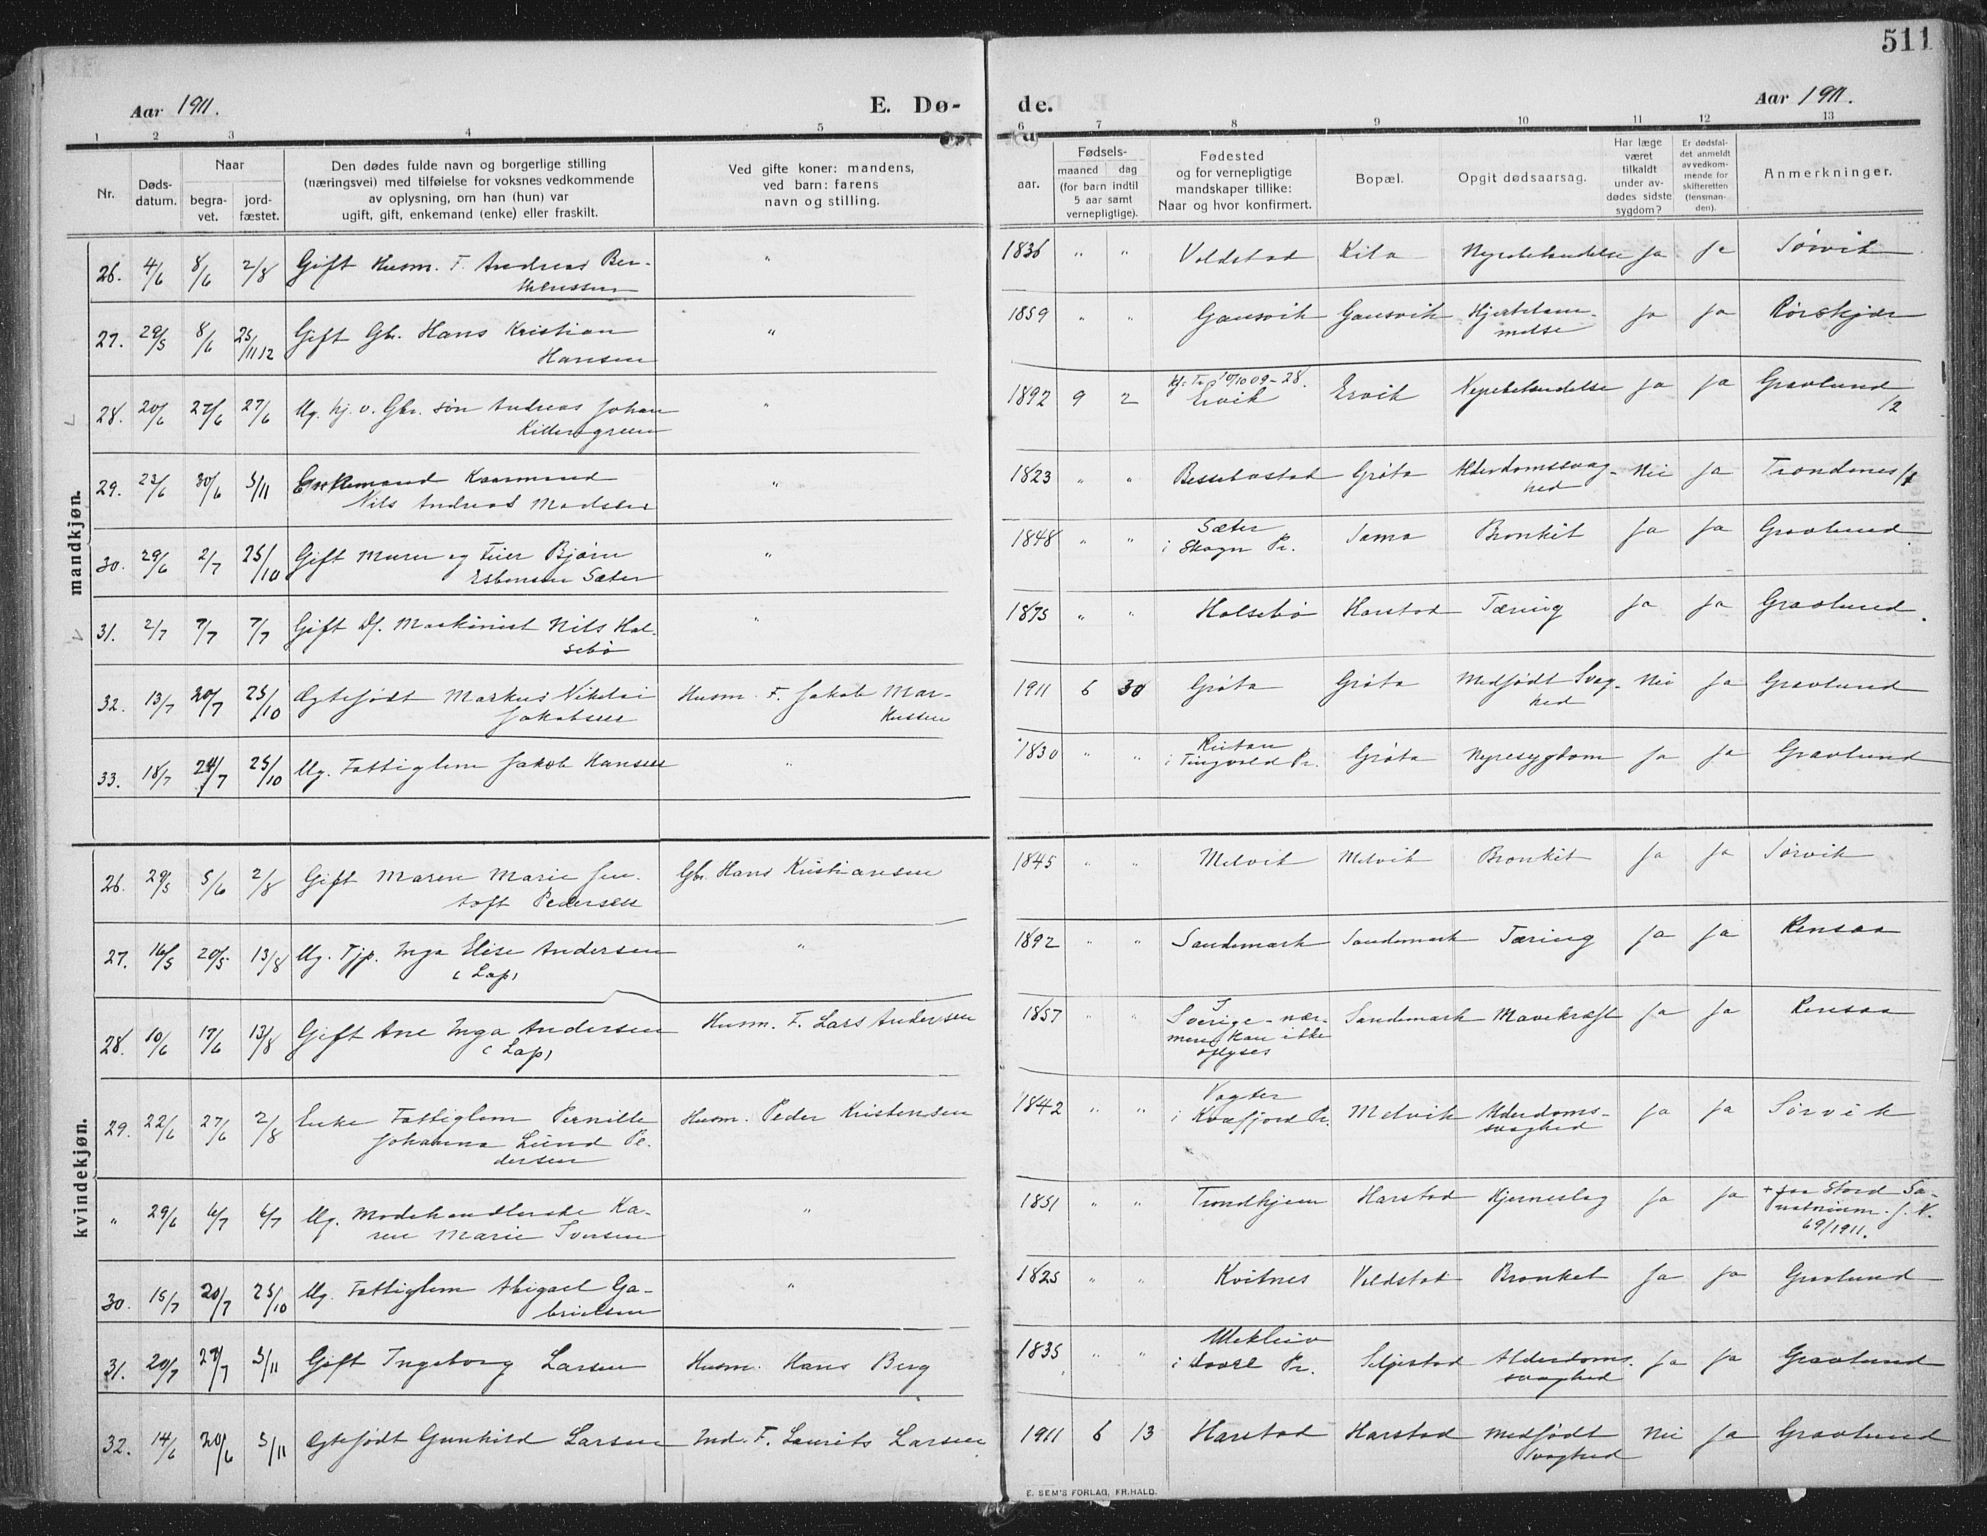 511
Aar 1911. E. Dø- de. Aar 1911.
1 2 3 4 5 6 7 8 9 10 11 12 13
Nr.
Døds-
datum.
Naar
begra-
vet.
jord-
fæstet.
Den dødes fulde navn og borgerlige stilling
(næringsvei) med tilføielse for voksnes vedkommende
av oplysning, om han (hun) var
ugift, gift, enkemand (enke) eller fraskilt.
Ved gifte koner: mandens,
ved barn: farens
navn og stilling.
aar.
Fødsels-
maaned dag
(for barn indtil
5 aar samt
vernepligtige).
Fødested
og for vernepligtige
mandskaper tillike:
Naar og hvor konfirmert.
Bopæl.
Opgit dødsaarsag.
Har læge
været
tilkaldt
under av-
dødes sidste
sygdom?
Er dødsfal-
det anmeldt
av vedkom-
mende for
skifteretten
(lensman-
den).
Anmerkninger.
mandkjøn.
26. 4/6 8/6 2/8 Gift Husm. F. Andreas Ber- " 1836 " " Voldstad Kila Nyrebetændelse Ja Ja Sørvik
27. 29/5 8/6 25/11 12 Gift Gbr. Hans Kristian " 1859 " " Gausvik Gausvik Hjertelam- Ja Ja Rørskjær
Hansen melse
28. 20/6 27/6 27/6 Ug. hj. v. Gbr. søn Andreas Johan " 1892 9 2 Ervik Ervik Nyrebetændelse Ja Ja Gravlund
Killengreen 1/2
29. 23/6 30/6 5/11 Enkemand Kaarmand " 1823 " " Bessebostad Grøta Alderdomssvag- Nei Ja Trondenes 1/1
Nils Andreas Madsen hed
30. 29/6 2/7 25/10 Gift Murer og Feier Bjørn " 1848 " " Sæter Sama Bronkit Ja Ja Gravlund.
Esbensen Sæter i Skogn Pr.
31. 2/7 7/7 7/7 Gift Df. Maskinist Nils Hol- " 1875 " " Holsebø Harstad Tæring Ja Ja Gravlund.
sebø
32. 13/7 20/7 25/10 Ægtefødt Markus Nikolai Husm. F. Jakob Mar- 1911 6 30 Grøta Grøta Medfødt Svag- Nei Ja Gravlund
Jakobsen kussen hed
33. 18/7 24/7 25/10 Ug. Fattiglem Jakob Hansen " 1830 " " i Tingvold Pr. Grøta Nyresygdom Ja Ja Gravlund
kvindekjøn.
26. 29/5 5/6 2/8 Gift Maren Marie Jen- Gbr. Hans Kristiansen 1845 " " Melvik Melvik Bronkit Ja Ja Sørvik
toft Pedersen
27. 16/5 20/5 13/8 Ug. Tjp. Inga Elise Andersen " 1892 " " Sandemark Sandemark Tæring Ja Ja Rensaa
(Lap)
28. 10/6 17/6 13/8 Gift Ane Inga Andersen Husm. F. Lars Andersen 1857 " " Sverige - nær- Sandemark Mavekræft Ja Ja Rensaa
(Lap) mere kan ikke
oplyses
29. 22/6 27/6 2/8 Enke Fattiglem Pernille Husm. Peder Kristensen 1842 " " Vogter Melvik Alderdoms- Ja Ja Sørvik
Johanna Lund Pe- i Kvæfjord Pr. svaghed
dersen
" 29/6 6/7 6/7 Ug. Modehandlerske Ka- " 1851 " " Trondhjem Harstad Hjerneslag Ja Ja + paa Stord Sa-
ren Marie Iversen natorium. J. N.
69/1911.
30. 15/7 20/7 25/10 Ug. Fattiglem Abigael Ga- " 1825 " " Kvitnes Voldstad Bronket Ja Ja Gravlund
brielsen
31. 20/7 27/7 5/11 Gift Ingeborg Larsen Husm. Hans Berg 1835 " " i Dovre Pr. Seljestad Alderdoms- Ja Ja Gravlund
svaghed
32. 14/6 20/6 5/11 Ægtefødt Gunhild Larsen Ind. F. Laurits Larsen 1911 6 13 Harstad Harstad Medfødt Nei Ja Gravlund
Svaghed
E. SEM'S FORLAG, FR.HALD.